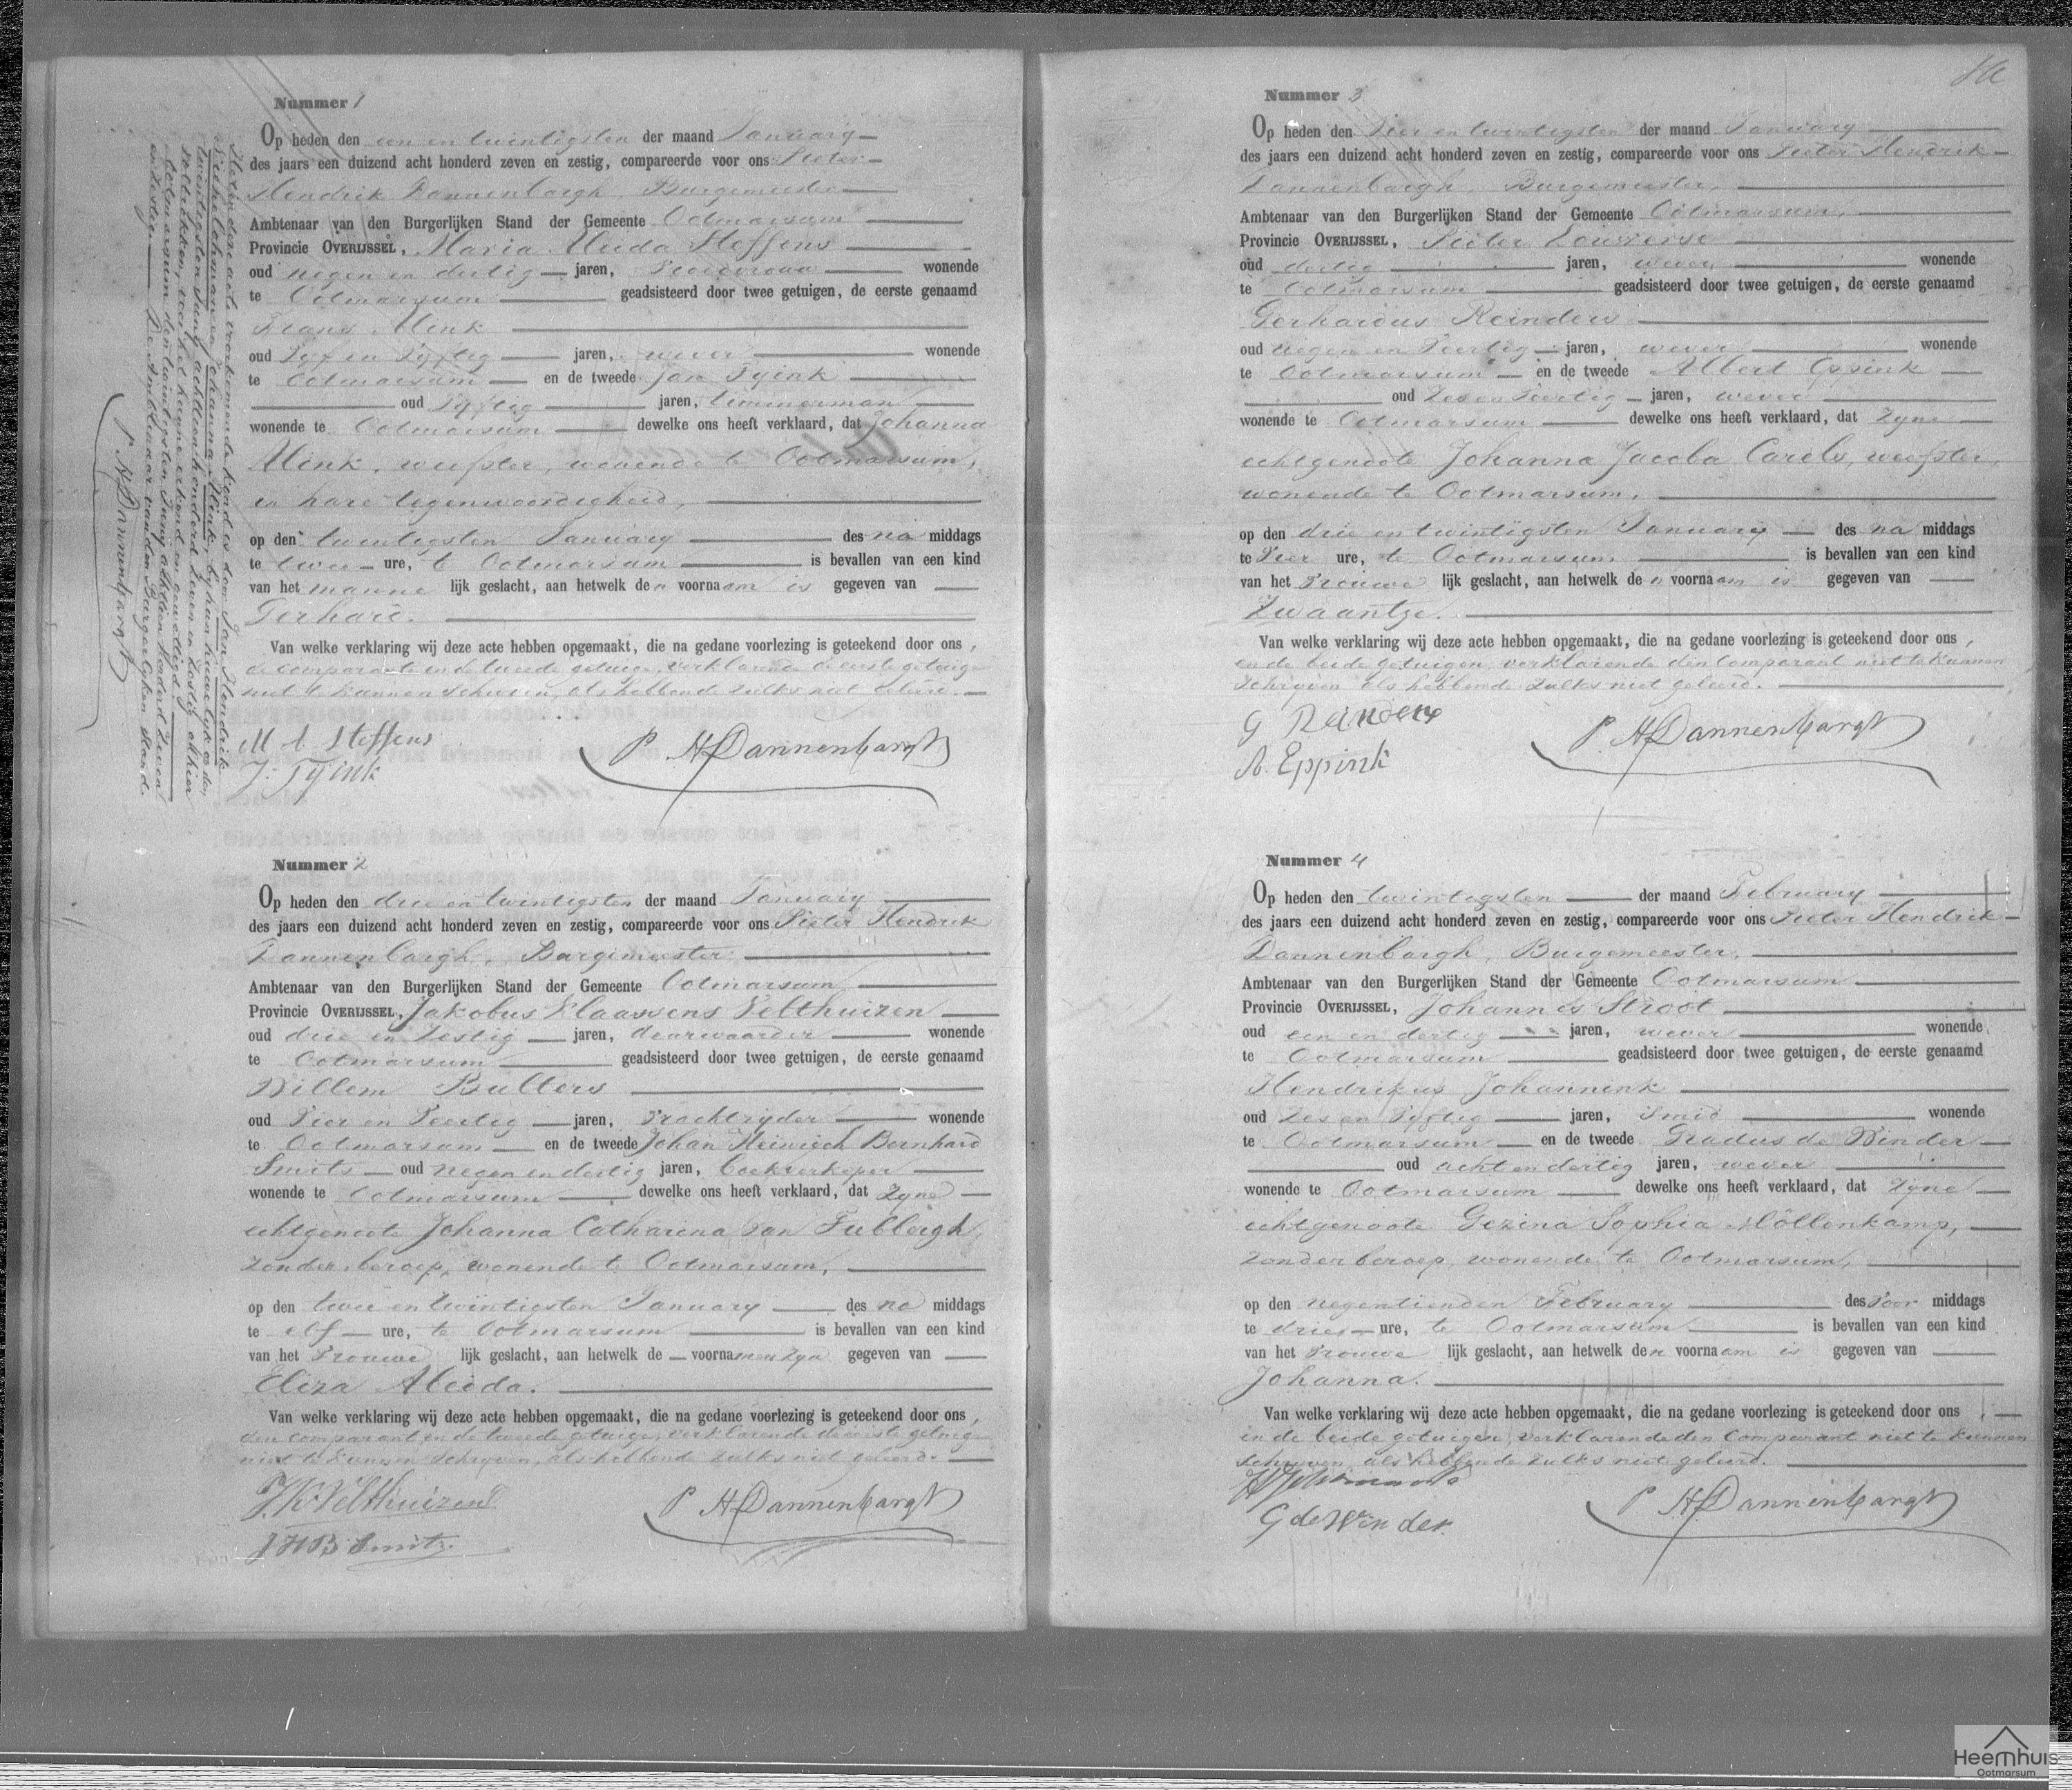 Nummer 1
Op heden den een en twintigsten der maand January
des jaars een duizend acht honderd zeven en zestig, compareerde voor ons Pieter
Hendrik Dannenbargh, Burgemeester
Ambtenaar van den Burgerlijken Stand der Gemeente Ootmarsum
Provincie OVERIJSSEL, Maria Aleida Steffens
oud negen en dertig jaren, Vroedvrouw wonende
te Ootmarsum geadsisteerd door twee getuigen, de eerste genaamd
Frans Mink
oud Vyf en Vyftig jaren, wever wonende
te Ootmarsum en de tweede Jan Tyink
oud Vyftig jaren, timmerman
wonende te Ootmarsum dewelke ons heeft verklaard, dat Johanna
Mink, weefster, wonende te Ootmarsum,
in hare tegenwoordigheid,
op den twintigsten January des na middags
te twee ure, te Ootmarsum is bevallen van een kind
van het manne lijk geslacht, aan hetwelk den voornaam is gegeven van
Gerhard.
Van welke verklaring wij deze acte hebben opgemaakt, die na gedane voorlezing is geteekend door ons,
de comparante en de tweede getuige, verklarende de eerste getuige
niet te kunnen schryven, als hebbende zulks niet geleerd.
M A Steffens
J: Tyink
P H Dannenbargh
Het in dere acte voorkomende kind is door Jan Hendrik
en Johanna Mink, by hun huwelyk op den
twintigsten Juny achttienhonderd zeven en zestig alhier
voltrokken, voor het hunne erkend en gewettigd.
Ootmarsum den twintigsten Juny achttien honderd zeven
en zestig. De Ambtenaar van den Burgerlyken stand.
P H Dannenbargh
Nummer 2
Op heden den drie en twintigsten der maand January
des jaars een duizend acht honderd zeven en zestig, compareerde voor ons Pieter Hendrik
Dannenbargh, Burgemeester
Ambtenaar van den Burgerlijken Stand der Gemeente Ootmarsum,
Provincie OVERIJSSEL, Jakobus Klaassens Velthuizen
oud drie en Zestig jaren, deurwaarder wonende
te Ootmarsum geadsisteerd door twee getuigen, de eerste genaamd
Willem Bulters
oud Vier en Veertig jaren, Vrachtryder wonende
te Ootmarsum en de tweede Johan Heinrich Bernhard
Smits oud negen en dertig jaren, boekverkoper
wonende te Ootmarsum dewelke ons heeft verklaard, dat zyne
echtgenoote Johanna Catharina van Tubbergh,
zonder beroep, wonende te Ootmarsum,
op den twee en twintigsten January des na middags
te elf ure, te Ootmarsum is bevallen van een kind
van het Vrouwe lijk geslacht, aan hetwelk de voornamen zyn gegeven van
Eliza Aleida.
Van welke verklaring wij deze acte hebben opgemaakt, die na gedane voorlezing is geteekend door ons,
den comparant en de tweede getuige, verklarende de eerste getuige
niet te kunnen schryven, als hebbende zulks niet geleerd.
J. K. Velthuizen
J H B Smits.
P H Dannenbargh
Nummer 3
Op heden den Vier en twintigsten der maand January
des jaars een duizend acht honderd zeven en zestig, compareerde voor ons Pieter Hendrik
Dannenbargh, Burgemeester,
Ambtenaar van den Burgerlijken Stand der Gemeente Ootmarsum,
Provincie OVERIJSSEL, Pieter Louwerse
oud dertig jaren, wever, wonende
te Ootmarsum geadsisteerd door twee getuigen, de eerste genaamd
Gerhardus Reinders
oud negen en Veertig jaren, wever wonende
te Ootmarsum en de tweede Albert Eppink
oud Zes en Veertig jaren, wever
wonende te Ootmarsum dewelke ons heeft verklaard, dat zyne
echtgenoote Johanna Jacoba Carels, weefster,
wonende te Ootmarsum,
op den drie en twintigsten January des na middags
te Vier ure, te Ootmarsum is bevallen van een kind
van het Vrouwe lijk geslacht, aan hetwelk den voornaam is gegeven van
Zwaantje.
Van welke verklaring wij deze acte hebben opgemaakt, die na gedane voorlezing is geteekend door ons,
en de beide getuigen, verklarende den Comparant niet te kunnen
schryven als hebbende zulks niet geleerd.
G Reinders
A. Eppink
P H Dannenbargh
Nummer 4
Op heden den twintigsten der maand February
des jaars een duizend acht honderd zeven en zestig, compareerde voor ons Pieter Hendrik
Dannenbargh, Burgemeester,
Ambtenaar van den Burgerlijken Stand der Gemeente Ootmarsum
Provincie OVERIJSSEL, Johannes Stroot
oud een en dertig jaren, wever wonende
te Ootmarsum geadsisteerd door twee getuigen, de eerste genaamd
Hendrikus Johannink
oud Zes en Vyftig jaren, Smid wonende
te Ootmarsum en de tweede Gradus de Winder
oud acht en dertig jaren, wever
wonende te Ootmarsum dewelke ons heeft verklaard, dat zyne
echtgenoote Gezina Sophia Möllenkamp,
zonder beroep, wonende te Ootmarsum,
op den negentienden February des Voor middags
te drie ure, te Ootmarsum is bevallen van een kind
van het Vrouwe lijk geslacht, aan hetwelk den voornaam is gegeven van
Johanna.
Van welke verklaring wij deze acte hebben opgemaakt, die na gedane voorlezing is geteekend door ons,
en de beide getuigen, verklarende den Comparant niet te kunnen
schryven als hebbende zulks niet geleerd.
G de Winder
P H Dannenbargh
Heemhuis
Ootmarsum